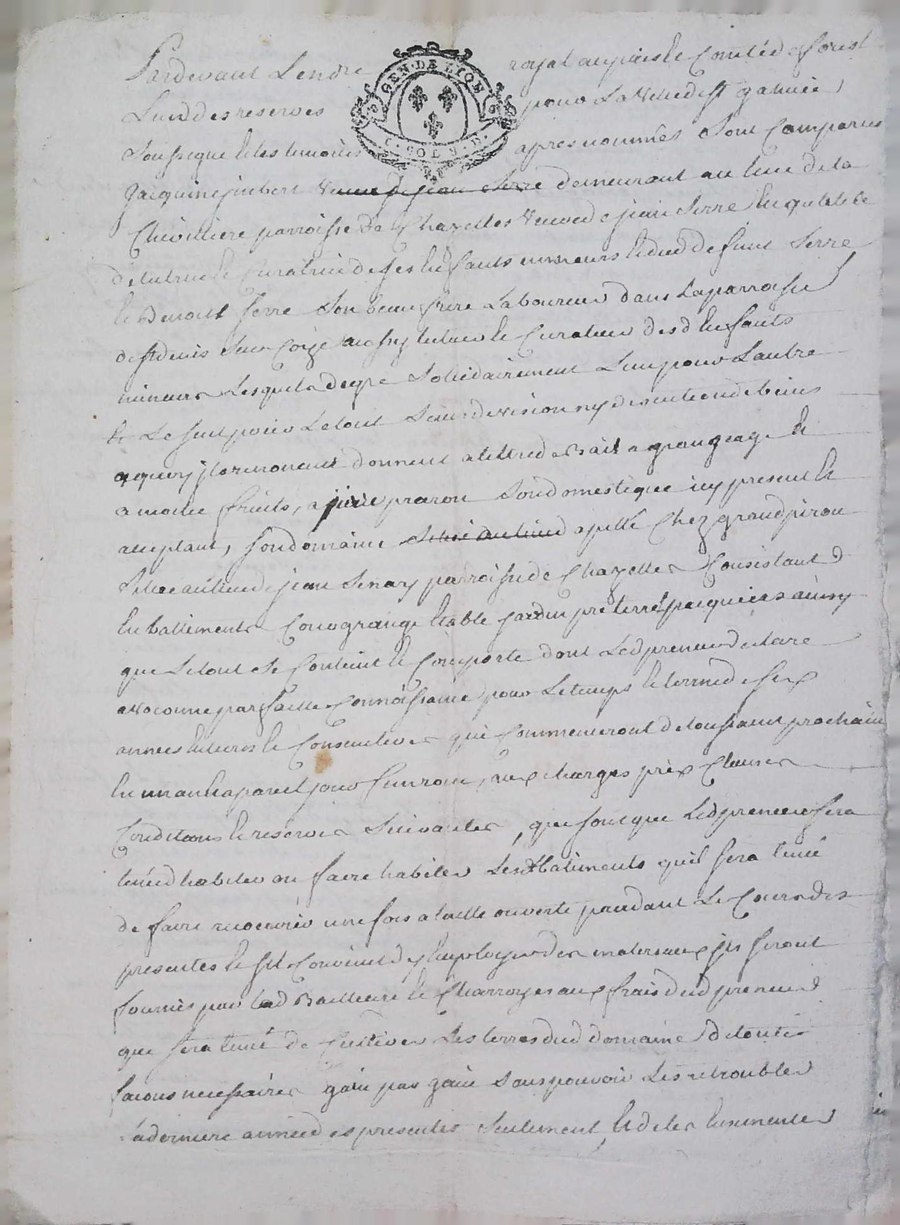 Pardevant Lenotre royal au païs et Comté de forest
Lun des reserves pour la Ville de St galmier
Soussigné et les temoins apres nommés Sont Comparus
Jacquine jmbert veuve de jean Serre demeurant au lieu de la
Chivilliere parroisse de Chazelles veuve de jean Serre en qualité de
de tutrice et Curatrice de ses enfants mineurs et dud defunt Serre
et Benoist Serre Son beau frere Laboureur dans La parroisse
de St denis Sur Coize aussy tuteur et Curateur desd enfants
mineurs Lesquels de gré Solidairement Lun pour Lautre
et Le Seul pour Le tout Sans division ny discution de biens
a quoy jls renoncent donnent a titre de Bail a grangeage et
a moitié fruits, a pierre prazon Son domestique icy present et
acceptant, Son domaine Situé au lieu apellé Chez grand pirou
Situé au lieu de jean Senay parroisse de Chazelles Consistant
En battiments Cour grange Etable jardin pré terres paquerages ainsy
que Le tout Se Contient et Comporte dont Led preneur declare
avoir une parfaitte Connoissance pour Le temps et terme de six
années entieres et Consecutives qui Commenceront de toussaint prochain
En un an a pareil jour finront, aux charges prix Clauses
Conditions et reserves Suivantes, qui sont que Led preneur sera
tenu d habiter ou faire habiter Lesd batiments quil sera tenu
de faire recouvrir une fois a taille ouverte pendant Le Cours des
presentes et S'il Convient d'y Employer des materiaux jls seront
fournis par Lad Bailleure et Charroyés aux frais dud preneur
que sera tenu de Cultiver Les terres dud domaine de toutes
facons necessaires gain pas gain Sans pouvoir Les retroubler
La derniere année des presentes Seulement, et de les Ensemencer
GEN. DE LION